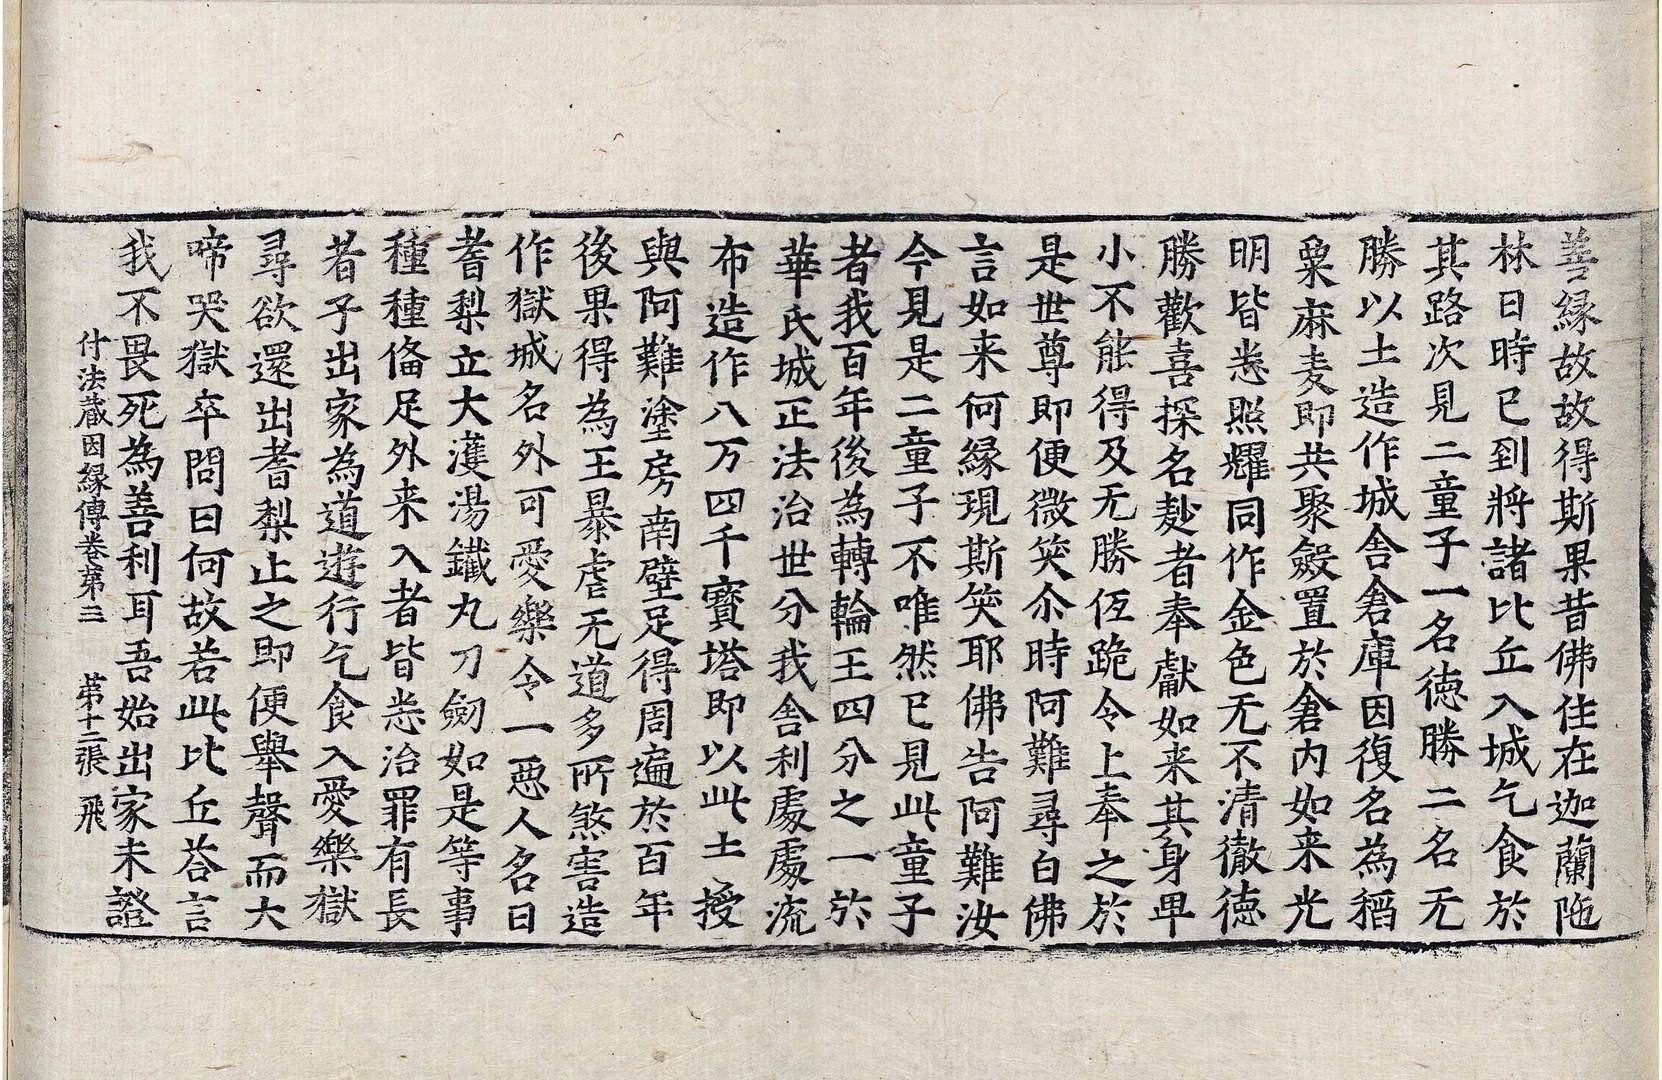 善縁故故得斯果昔佛住在迦蘭陁
林日時已到將諸比丘入城乞食於
其路次見二童子一名徳勝二名无
勝以土造作城舎倉庫因復名為稻
粟麻麦即共聚斂置於倉內如来光
明皆悉照耀同作金色无不清徹徳
勝歡喜探名麨者奉獻如来其身卑
小不能得及无勝伍跪令上奉之於
是世尊即便微笑尒時阿難尋白佛
言如来何縁現斯笑耶佛告阿難汝
今見是二童子不唯然已見此童子
者我百年後為轉輪王四分之一於
華氏城正法治世分我舎利處處流
布造作八万四千寳塔即以此土授
與阿難塗房南壁足得周遍於百年
後果得為王暴虐无道多所煞害造
作獄城名外可愛樂令一惡人名曰
耆梨立大濩湯鐵丸刀劒如是等事
種種俻足外来入者皆悉治罪有長
者子出家為道遊行乞食入愛樂獄
尋欲還出耆梨止之即便舉聲而大
啼哭獄卒問曰何故若此比丘荅言
我不畏死為善利耳吾始出家未證
付法蔵因縁傳卷第三 第十二張 飛